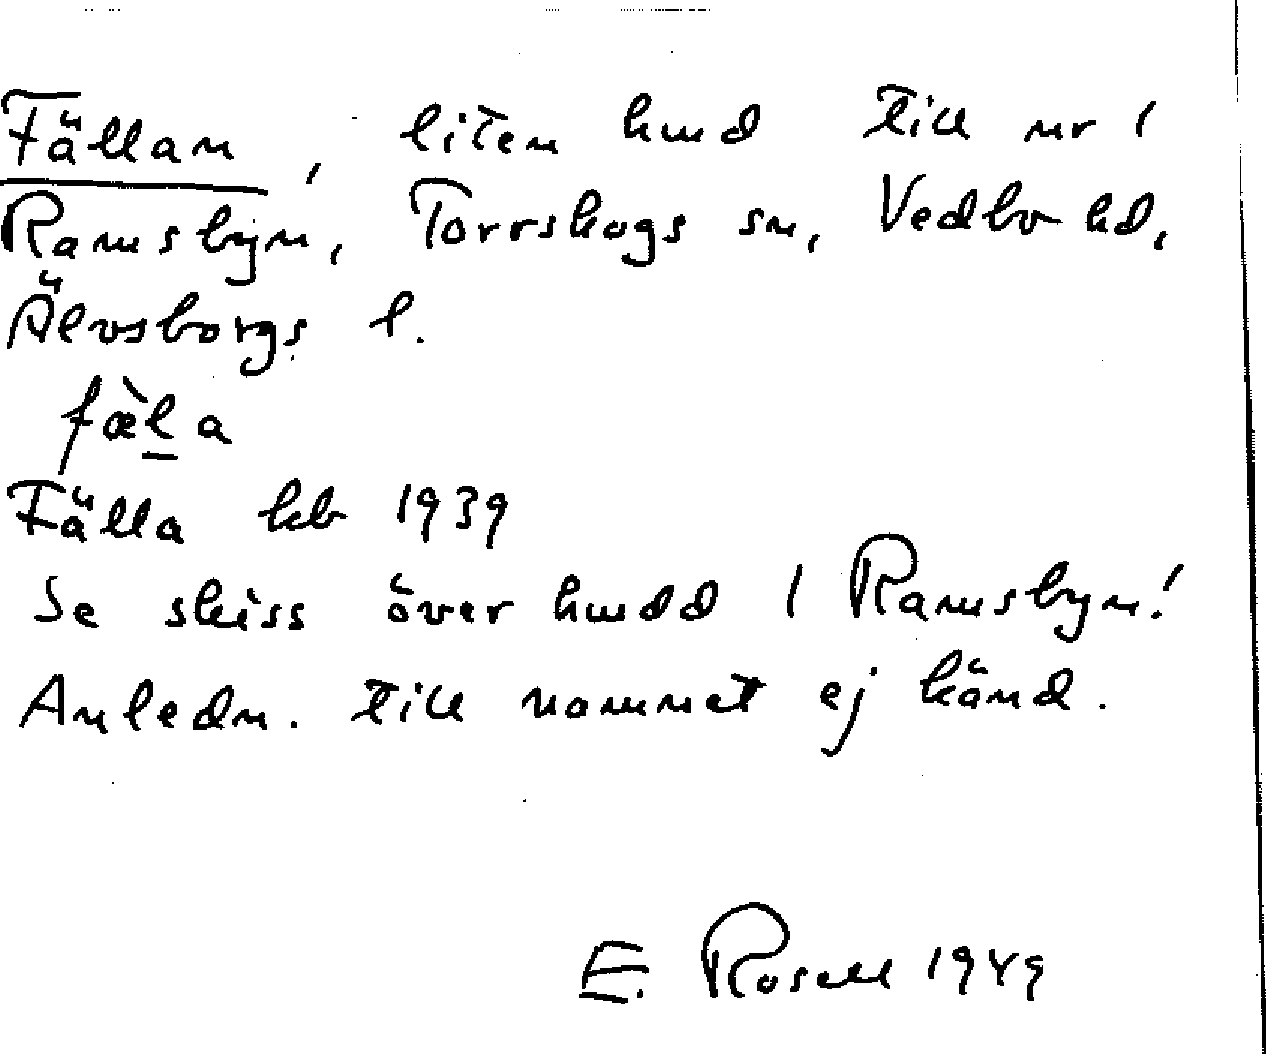 Fällan, liten hmd till nr 1
Ramsbyn, Torrskogs sn, Vedbo hd,
Älvsborgs l.
fæ̀l̲a
Fälla kb 1939
Se skiss över hmdd 1 Ramsbyn!
Anledn. till namnet ej känd.
E. Rosell 1949